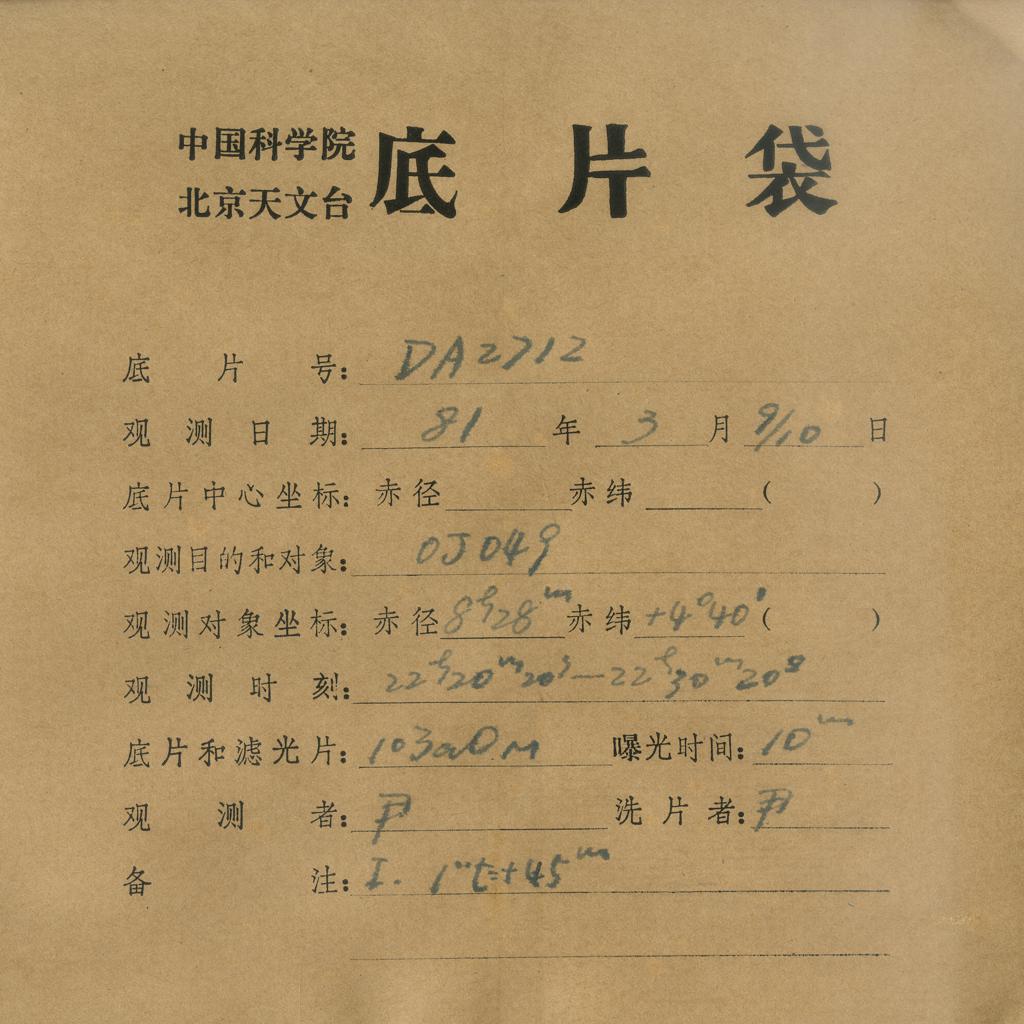 中国科学院
北京天文台
底片袋
底片号: DA2712
观测日期: 81年3月9/10日
底片中心坐标: 赤径 赤纬 ( )
观测目的和对象: OJ049
观测对象坐标: 赤径 8h28m 赤纬 +4°40′ ( )
观测时刻: 22h20m20s—22h30m20s
底片和滤光片: 103aO 曝光时间: 10m
观测者: 尹 洗片者: 尹
备注: I. t=+45m